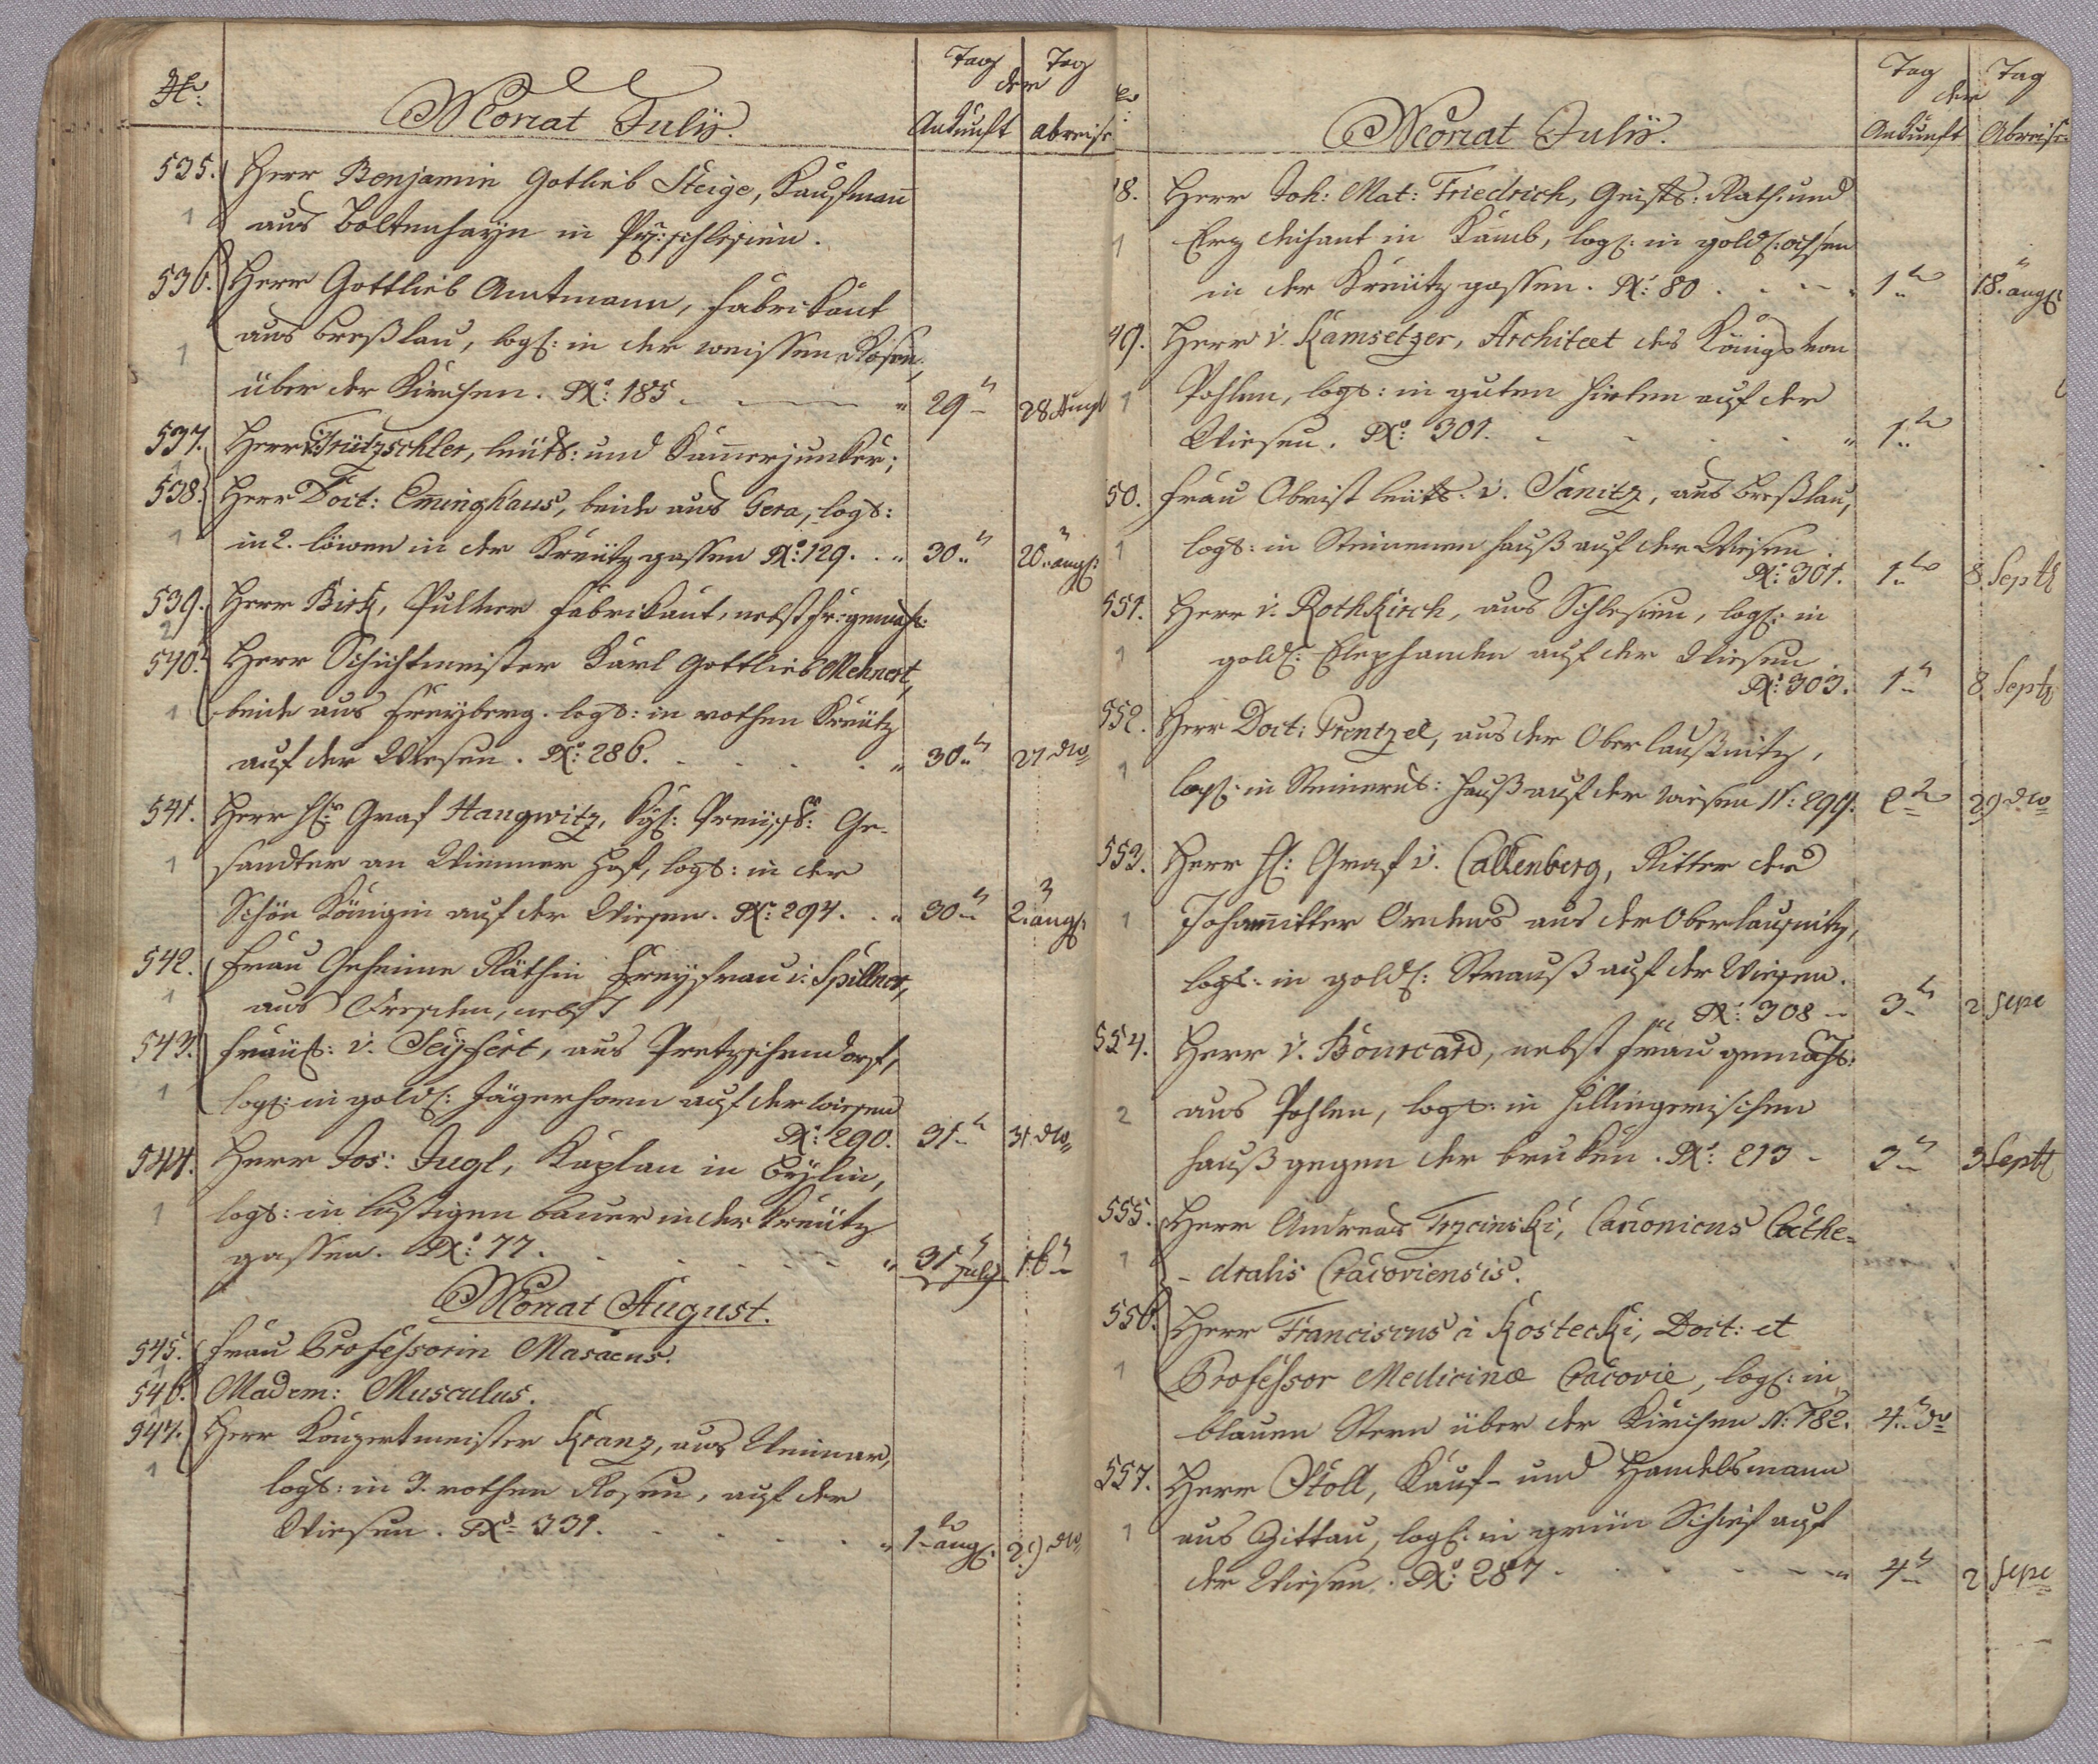 No:
Monat Julij.
Tag Tag
der
Ankunft Abreise
535. Herr Benjamin Gotlieb Steige, Kaufmann
1 aus Boltenhayn in Pr: schlesien.
536. Herr Gottlieb Amtmann, fabrikant
aus Breßlau, logs: in der weissen Rosen,
1
über der Kirchen. No: 185. 29 28 Augs
537. Herr v. Trützschler, leuts: und Kammerjunker;
1
538. Herr Doct: Eminghaus, beide aus Gera, logs:
1 in 2. löwen in der Kreutz gassen No: 129. 30 20 augs:
539. Herr Birk, Pulver fabrikant, nebst fr: gemahl:
2
540. Herr Schichtmeister Karl Gottlieb Mehnert,
1 beide aus Freyberg. logs: in rothen Kreutz
auf der Wiesen. No: 286. 30 27 dto
541. Herr Graf Haugwitz, Kgl: Preuss: Ge-
1 sandter an Wienner Hof, logs: in der
Schön Königin auf der Wiesen. No: 294. 30 2 augs:
542. Frau Geheime Räthin Freyfrau v: Spillner,
1 aus Dresden, nebst
543. Fräul: v. Seyfert, aus Pretzschendorf,
1 logs: in gold: Jägerhorn auf der Wiesen
No: 290. 31 31 dto
544. Herr Jos: Jugl, Kaplan in
1 logs: in lustigen bauer in der Kreutz
gassen. No: 77. 31 July 16
Monat August.
545. Frau Professorin Masaeus.
1
546. Madem: Musculus.
1
547. Herr Konzertmeister Kranz, aus Weimar,
1
logs: in 3. rothen Rosen, auf der
Wiesen. No: 331. 1 augs: 29 dto
Monat Julij.
Tag Tag
der
Ankunft Abreise
48. Herr Joh: Mat: Friedrich, Geistl: Rath und
1 Erz dechant in Kamb, logs: in gold: ochsen
in der Kreutz gassen. No: 80 1 18 augs:
49. Herr v. Kamsetzer, Architect des Königs von
1 Pohlen, logs: in guten Hirten auf der
Wiesen. No: 301. 1
50. Frau Obrist leuts: v. Sanitz, aus Breßlau,
1 logs: in Steinernen hauß auf der Wiesen.
No: 301. 1 8 Septb
551. Herr v. Rothkirch, aus Schlesien, logs: in
1 gold: Elephanten auf der Wiesen.
No: 303. 1 8 Septb
552. Herr Doct: Prentzel, aus der Oberlaußnitz,
1
logs: in Steinern: hauß auf der Wiesen N: 299. 2 29 dto
553. Herr Graf v. Callenberg, Ritter des
1 Johannitter Ordens aus der Oberlausnitz,
logs: in gold: Strauß auf der Wiesen.
No: 308 3 2 Sept
554. Herr v. Bourcard, nebst Frau gemahl:
2 aus Pohlen, logs: in Hillingerischen
hauß gegen der brucken. No: 213 3 3 Septb
555. Herr Andreas Trzcinski, Canonicus Cathe-
1 -dralis Cracoviensis.
556. Herr Franciscus à Kostecki, Doct: et
1 Professor Medicinæ Cracovie, logs: in
blauen Stern über der Kirchen N: 182. 4 do
557. Herr Stoll, Kauf- und Handelsmann
1 aus Zittau, logs: in grün Schief auf
der Wiesen. No: 287 4 2 Sept